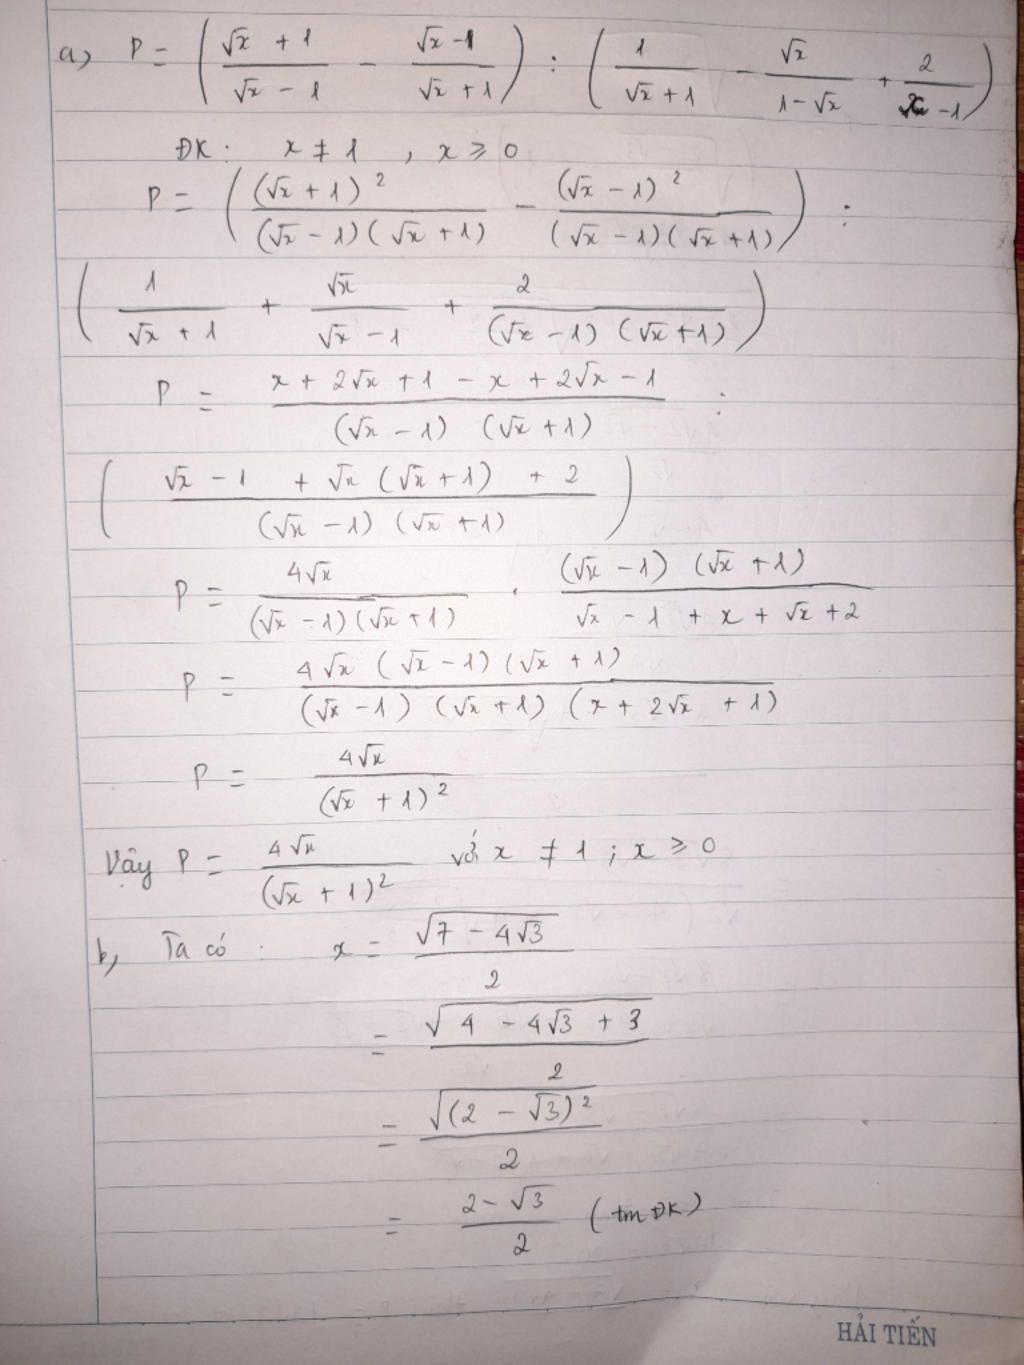 a) P = ( (√x + 1)/(√x - 1) - (√x - 1)/(√x + 1) ) : ( 1/(√x + 1) - √x/(1 - √x) + 2/(x - 1) )
ĐK: x ≠ 1 , x ⩾ 0
P = ( (√x + 1)²/((√x - 1)(√x + 1)) - (√x - 1)²/((√x - 1)(√x + 1)) ) :
( 1/(√x + 1) + √x/(√x - 1) + 2/((√x - 1)(√x + 1)) )
P = (x + 2√x + 1 - x + 2√x - 1)/((√x - 1)(√x + 1)) :
( (√x - 1 + √x(√x + 1) + 2)/((√x - 1)(√x + 1)) )
P = 4√x/((√x - 1)(√x + 1)) . ((√x - 1)(√x + 1))/(√x - 1 + x + √x + 2)
P = (4√x(√x - 1)(√x + 1))/((√x - 1)(√x + 1)(x + 2√x + 1))
P = 4√x/(√x + 1)²
Vậy P = 4√x/(√x + 1)² với x ≠ 1 ; x ⩾ 0
b, Ta có : x = √(7 - 4√3)/2
= √(4 - 4√3 + 3)/2
= √((2 - √3)²)/2
= (2 - √3)/2 (tm ĐK)
HẢI TIẾN